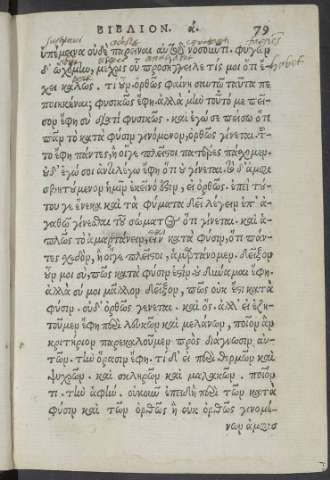 ΒΙΒΛΙΟΝ. ά. 79
ὑπέμεινα οὐδὲ παρεῖναι αὐτῷ νοσοῦντι. φυγὼν
δ' ὠχόμην, μέχρις οὗ προσήγγειλέ τίς μοι ὅτι ἔ-
χει καλῶς. τί οὖν. ὀρθῶς φαίνῃ σαυτῷ ταῦτα πε
ποιηκέναι; φυσικῶς ἔφη. ἀλλὰ μὴν τοῦτό με πεῖ-
σον ἔφη σὺ διότι φυσικῶς. καὶ ἐγώ σε πείσω ὅτι
πᾶν τὸ κατὰ φύσιν γινόμενον, ὀρθῶς γίνεται. τοῦ-
το ἔφη πάντες, ἢ οἵγε πλεῖστοι πατέρες πάσχομεν.
οὐδ' ἐγώ σοι ἀντιλέγω ἔφη ὅτι οὐ γίνεται. τὸ δ' ἀμφι
σβητούμενον ἡμῖν ἐκεῖνό ἐστιν, εἰ ὀρθῶς. ἐπεὶ τού-
του γε ἕνεκα καὶ τὰ φύματα δεῖ λέγειν ἐπ' ἀ-
γαθῷ γίνεσθαι τοῦ σώματος ὅτι γίνεται. καὶ ἁ-
πλῶς τὸ ἁμαρτάνειν, εἶναι κατὰ φύσιν, ὅτι πάν-
τες σχεδὸν, ἢ οἵγε πλεῖστοι, ἁμαρτάνομεν. δεῖξον
οὖν μοι σύ, πῶς κατὰ φύσιν ἐστίν. οὐ δύναμαι ἔφη.
ἀλλὰ σύ μοι μᾶλλον δεῖξον, πῶς οὐκ ἔστι κατὰ
φύσιν. οὐδ' ὀρθῶς γίνεται. καὶ ὅς. ἀλλ' εἰ ἐζη-
τοῦμεν ἔφη περὶ λευκῶν καὶ μελάνων, ποῖον ἂν
κριτήριον παρεκαλοῦμεν πρὸς διάγνωσιν αὐ-
τῶν. τὴν ὅρασιν ἔφη. τί δ' εἰ περὶ θερμῶν καὶ
ψυχρῶν. καὶ σκληρῶν καὶ μαλακῶν. ποῖόν
τι. τὴν ἁφήν. οὐκοῦν ἐπειδὴ περὶ τῶν κατὰ
φύσιν καὶ τῶν ὀρθῶς ἢ οὐκ ὀρθῶς γινομέ-
νων ἀμφισ